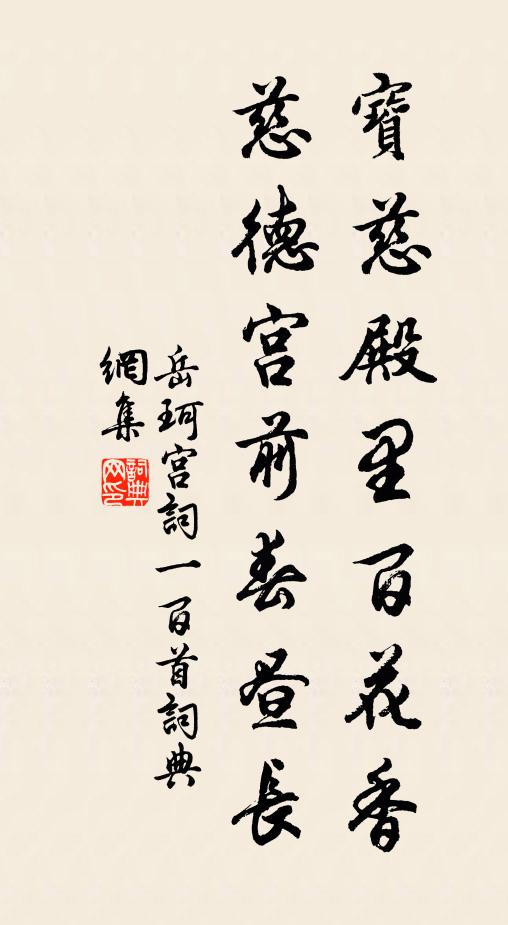 寶慈殿里百花香
慈德宫前春昼長
岳珂宫詞一百首詞典
網集
詞典網印